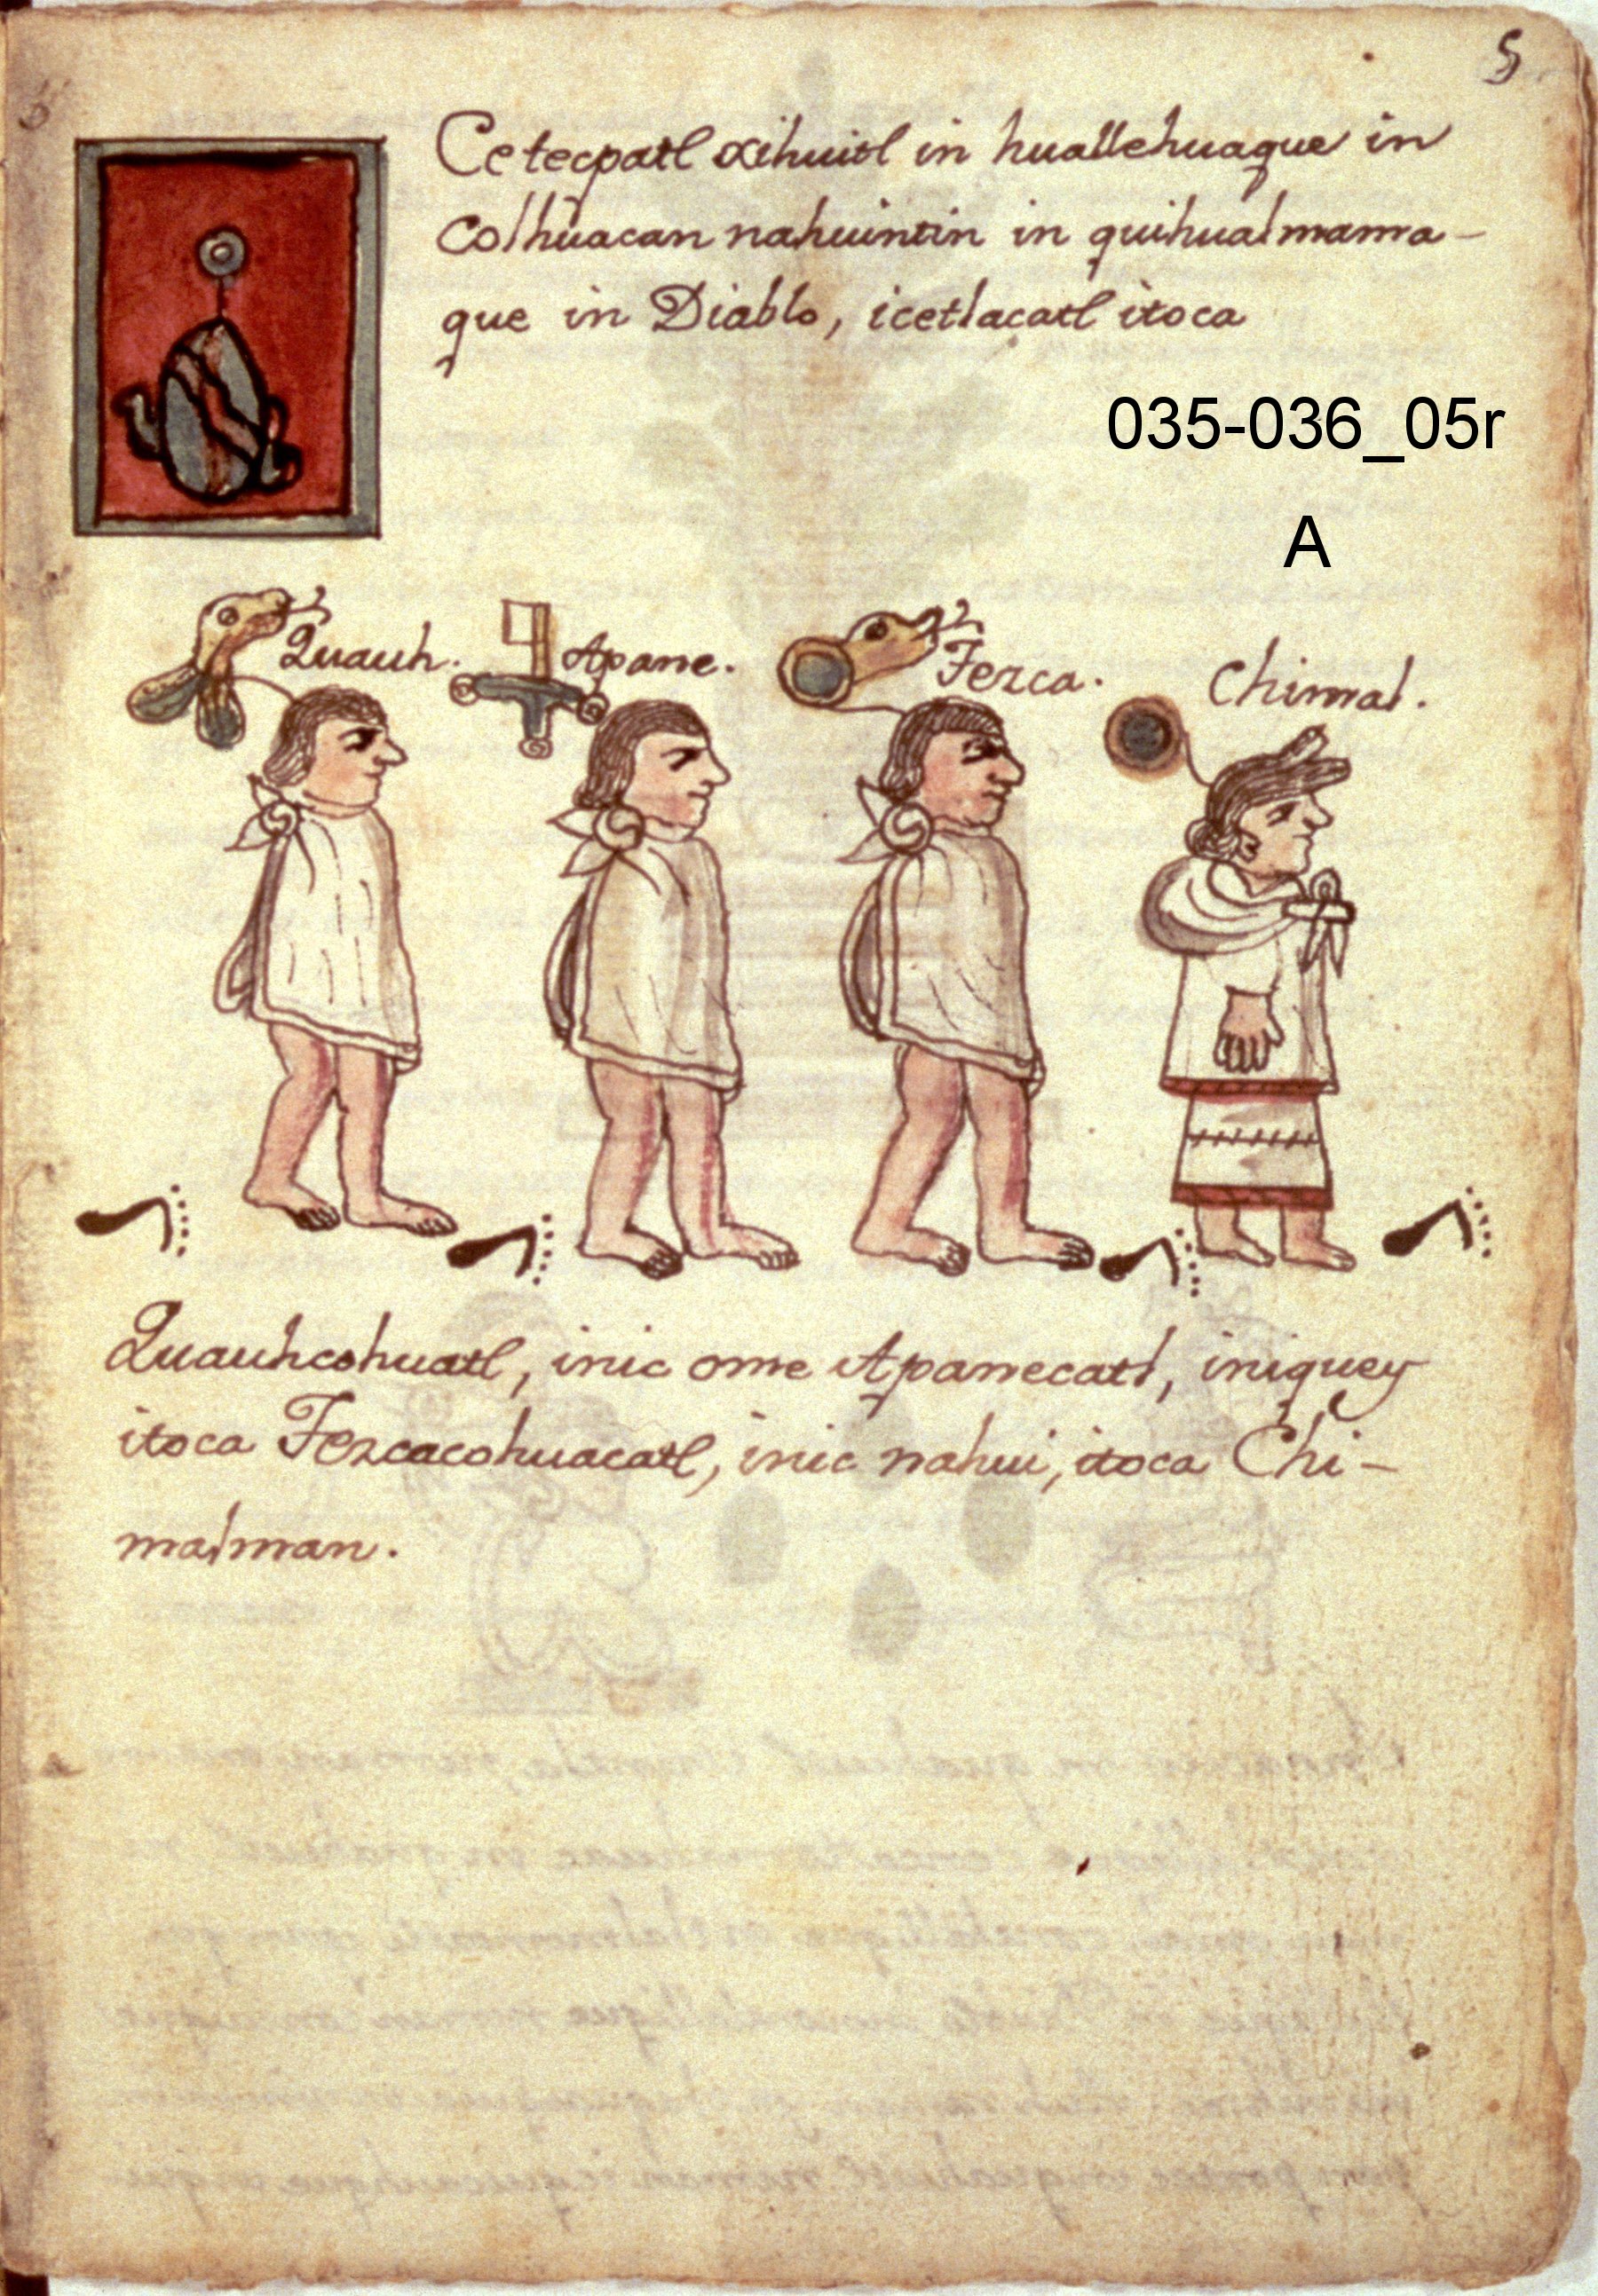 5
Ce tecpatl xihuitl in huallehuaque in
Colhuacan nahuintin in quihualmama-
que in Diablo, icetlacatl itoca
035-036_05r
A
Quauh.
Apane.
Tezca.
Chimal.
Quauhcohuatl, inic ome Apanecatl, iniquey
itoca Tezcacohuacatl, inic nahui, itoca Chi-
malman.